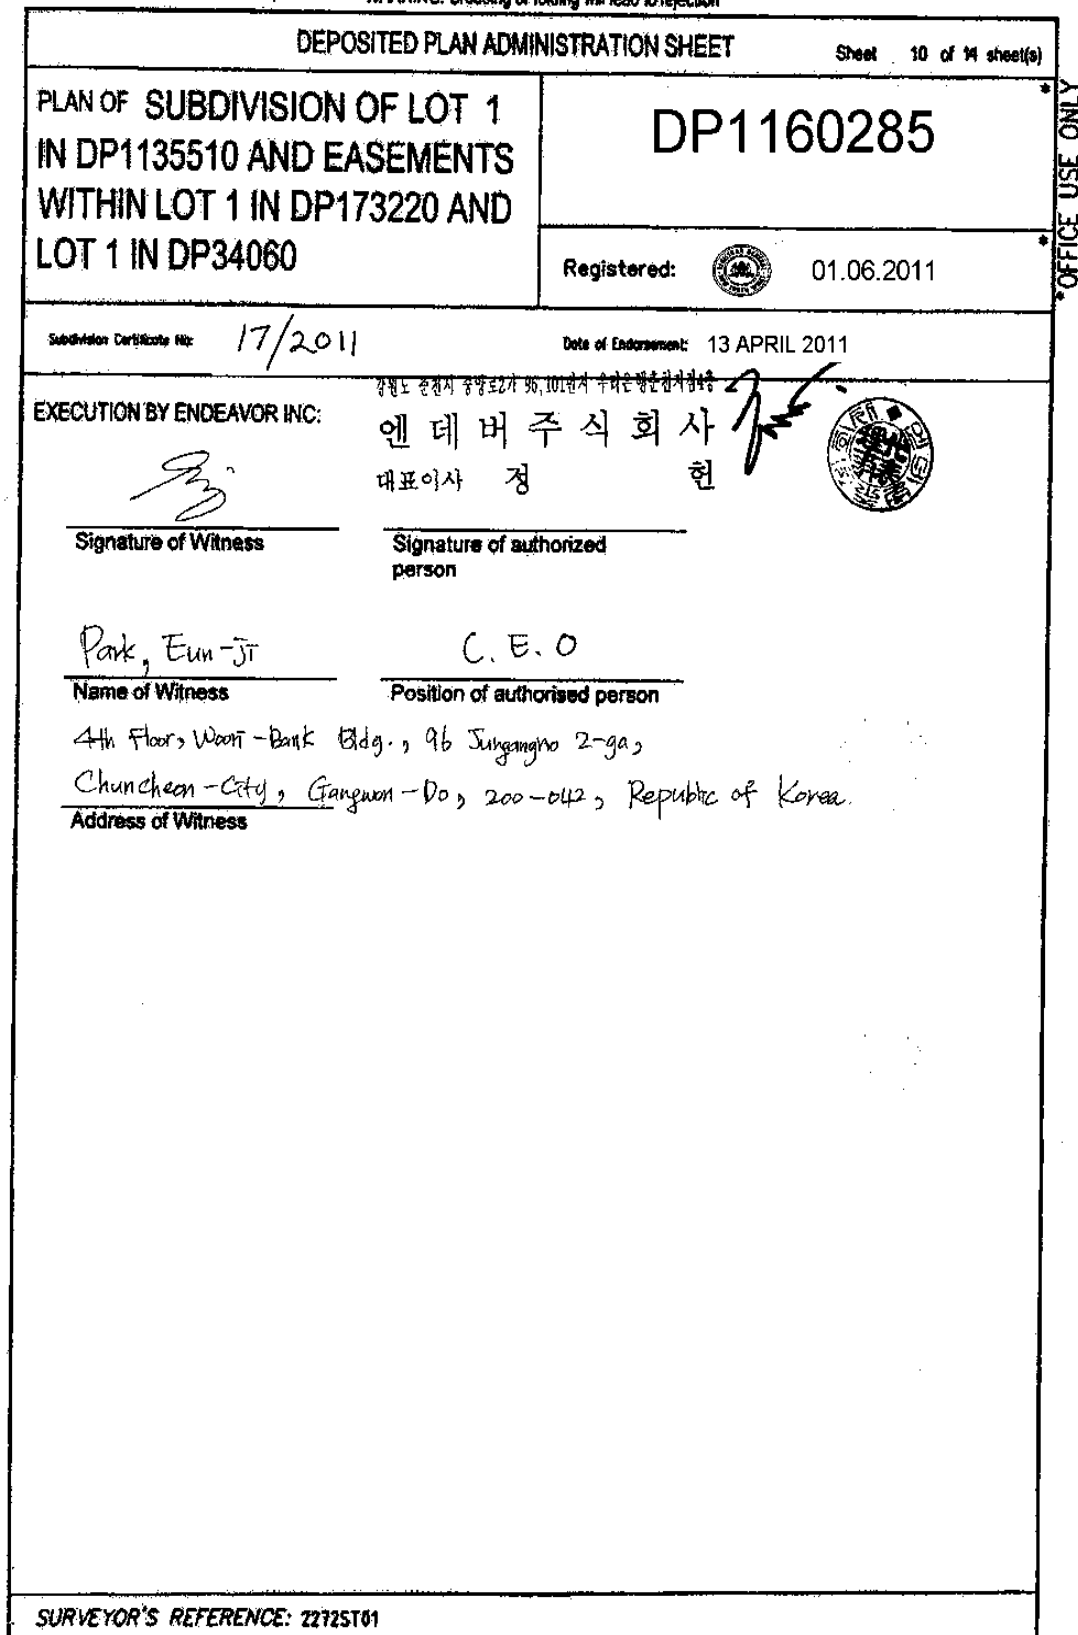 WARNING: Creasing or folding will lead to rejection
DEPOSITED PLAN ADMINISTRATION SHEET
Sheet 10 of 14 sheet(s)
PLAN OF SUBDIVISION OF LOT 1
IN DP1135510 AND EASEMENTS
WITHIN LOT 1 IN DP173220 AND
LOT 1 IN DP34060
DP1160285
*
Registered:
01.06.2011
*
*OFFICE USE ONLY
Subdivision Certificate No: 17/2011
Date of Endorsement: 13 APRIL 2011
강원도 춘천시 중앙로2가 96,101번지 우리은행춘천지점4층
EXECUTION BY ENDEAVOR INC:
엔데버주식회사
대표이사 정 헌
Signature of Witness
Signature of authorized
person
Park, Eun-ji
C.E.O
Name of Witness
Position of authorised person
4th Floor, Woori-Bank Bldg., 96 Jungangno 2-ga,
Chuncheon-City, Gangwon-Do, 200-042, Republic of Korea.
Address of Witness
SURVEYOR'S REFERENCE: 22725T01